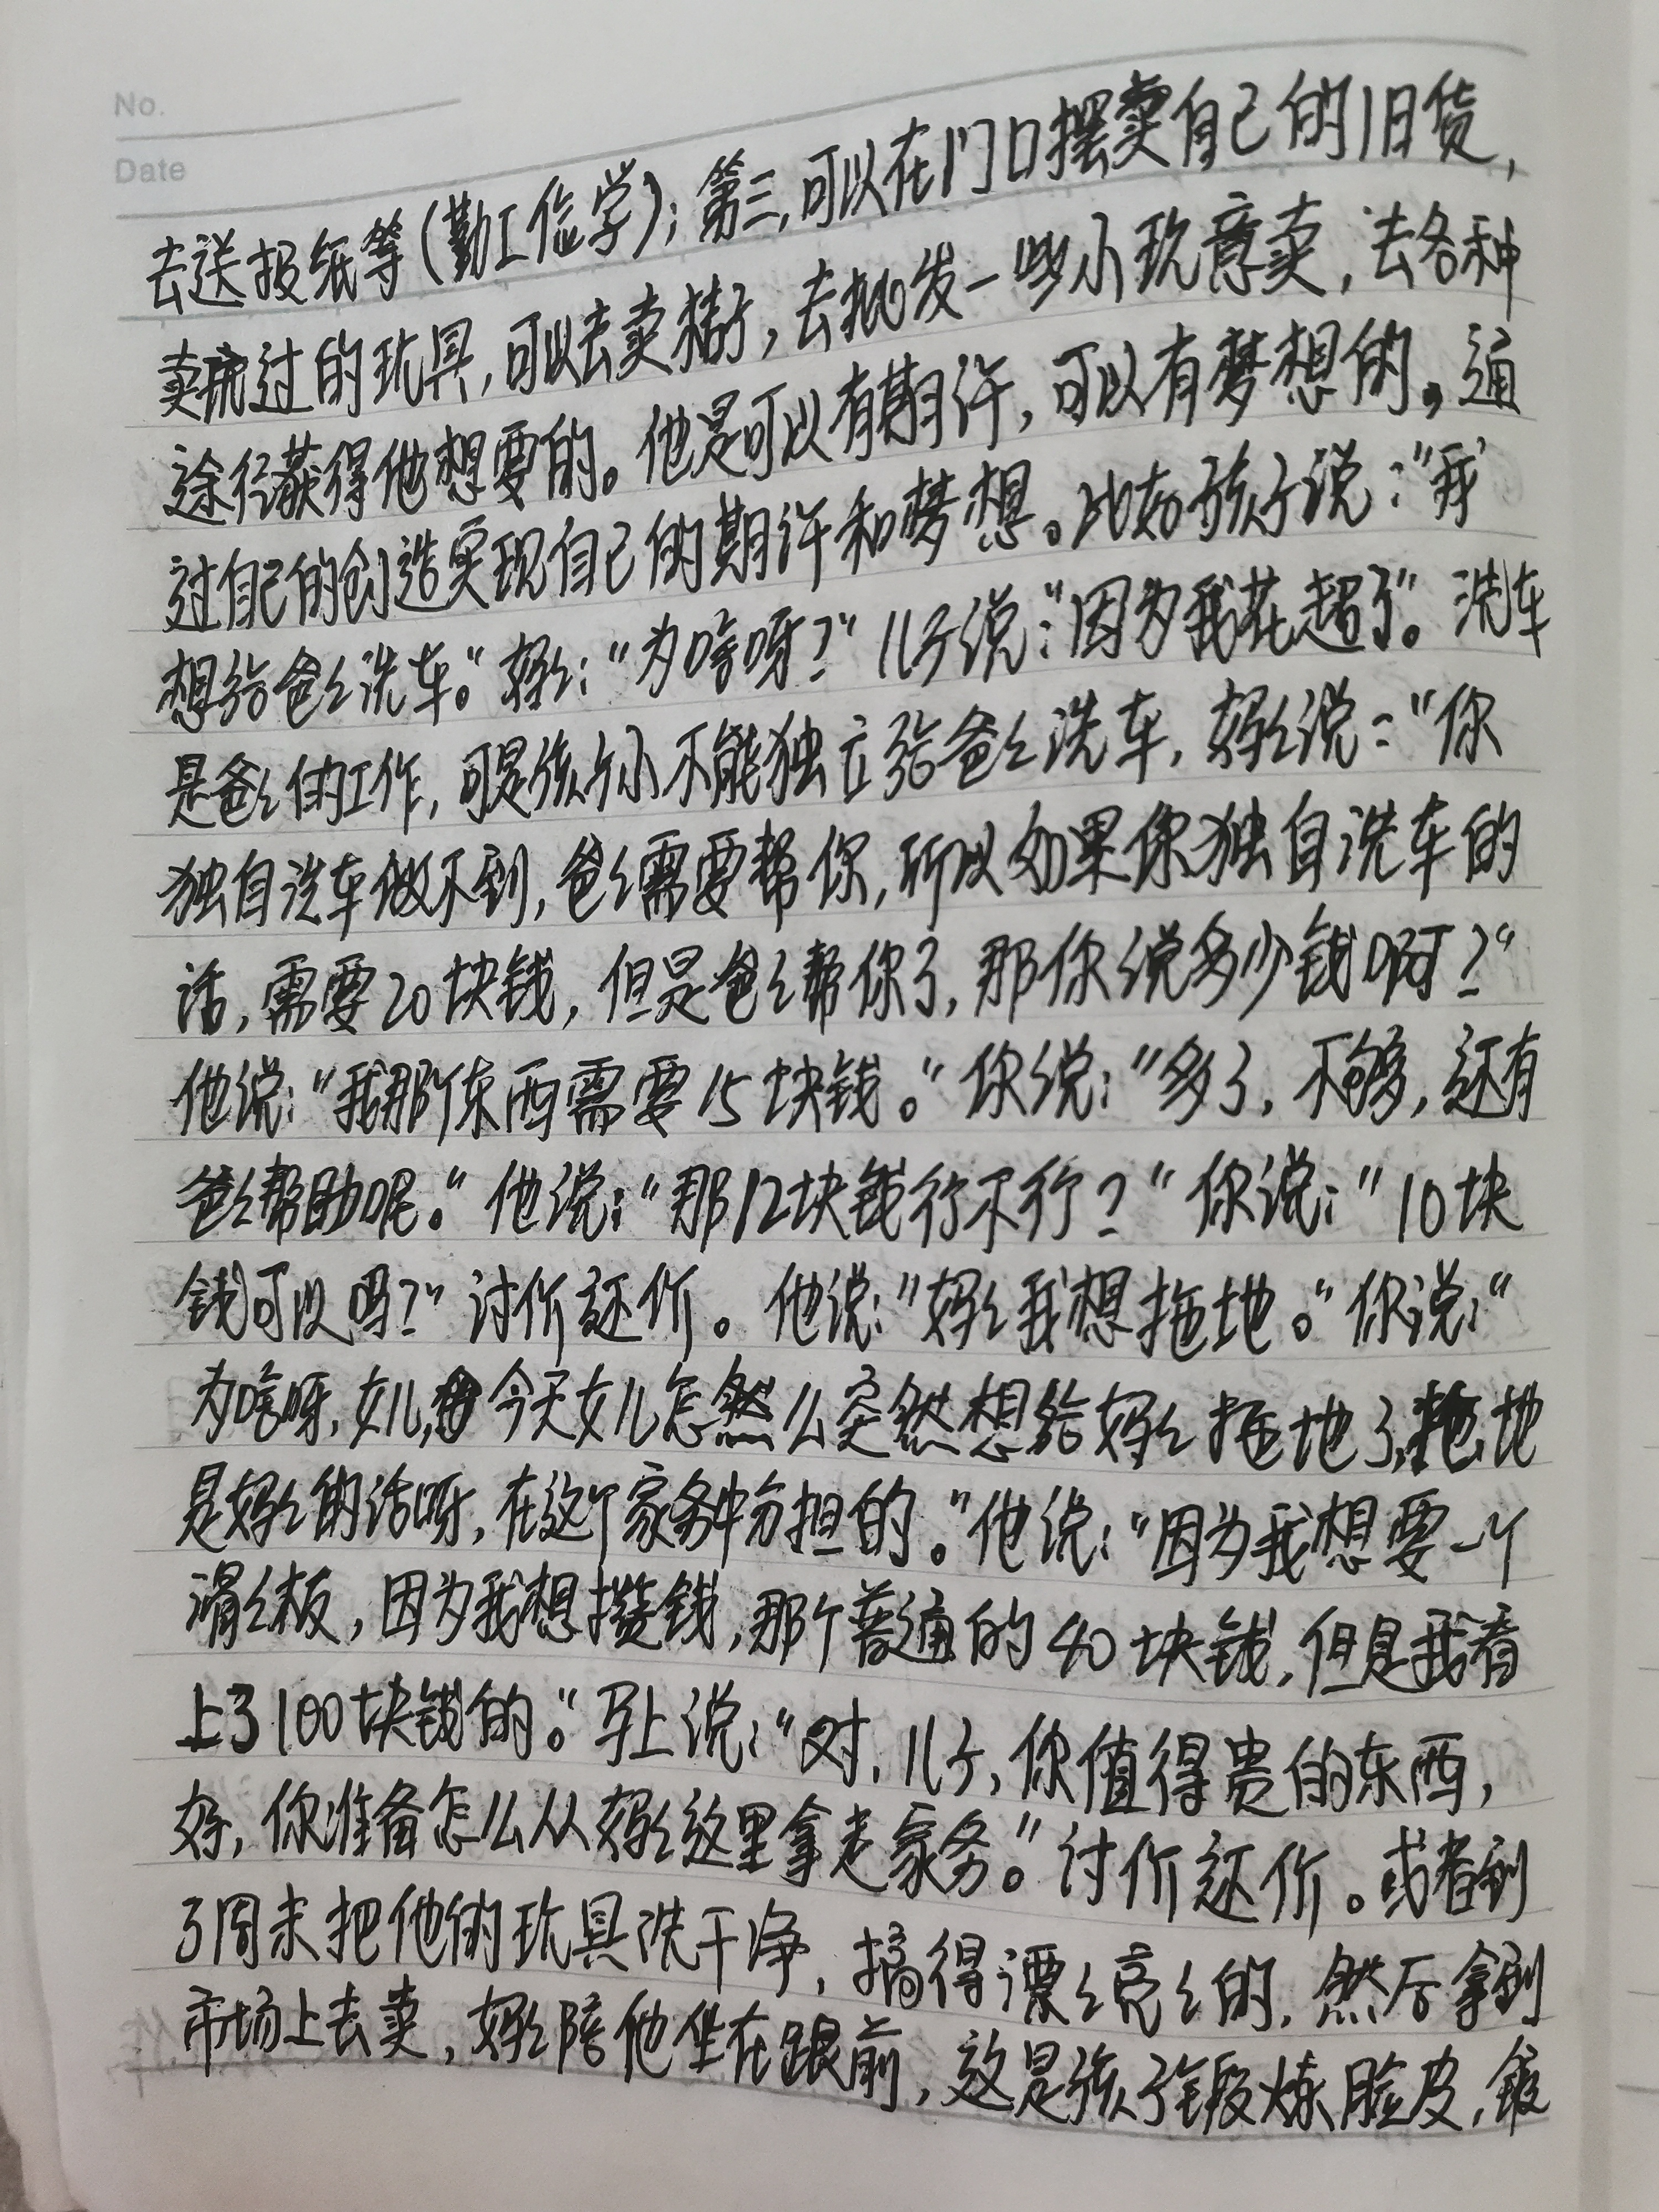 No.
Date
去送报纸等(勤工俭学);第三,可以在门口摆卖自己的旧货,
卖玩过的玩具,可以去卖橘子,去批发一些小玩意卖,去各种
途径获得他想要的。他是可以有期许,可以有梦想的。通
过自己的创造实现自己的期许和梦想。比如孩子说:“我
想给爸々洗车。”妈々:“为啥呀?”儿子说:“因为我花超了”。洗车
是爸々的工作,可是孩子小不能独立给爸々洗车,妈々说:“你
独自洗车做不到,爸々需要帮你,所以如果你独自洗车的
话,需要20块钱,但是爸々帮你了,那你说多少钱啊?”
他说:“我那个东西需要15块钱。”你说:“多了,不够,还有
爸々帮助呢。”他说:“那12块钱行不行?”你说:“10块
钱可以吗?”讨价还价。他说:“妈々我想拖地。”你说:“
为啥呀,女儿,今天女儿怎么突然想给妈々拖地了,拖地
是妈々的活呀,在这个家务中分担的。”他说:“因为我想要一个
滑々板,因为我想攒钱,那个普通的40块钱,但是我看
上了100块钱的。”马上说:“对,儿子,你值得贵的东西,
好,你准备怎么从妈々这里拿走家务。”讨价还价。或者到
了周末把他的玩具洗干净,搞得漂々亮々的,然后拿到
市场上去卖,妈々陪他坐在跟前,这是孩子锻炼脸皮,锻